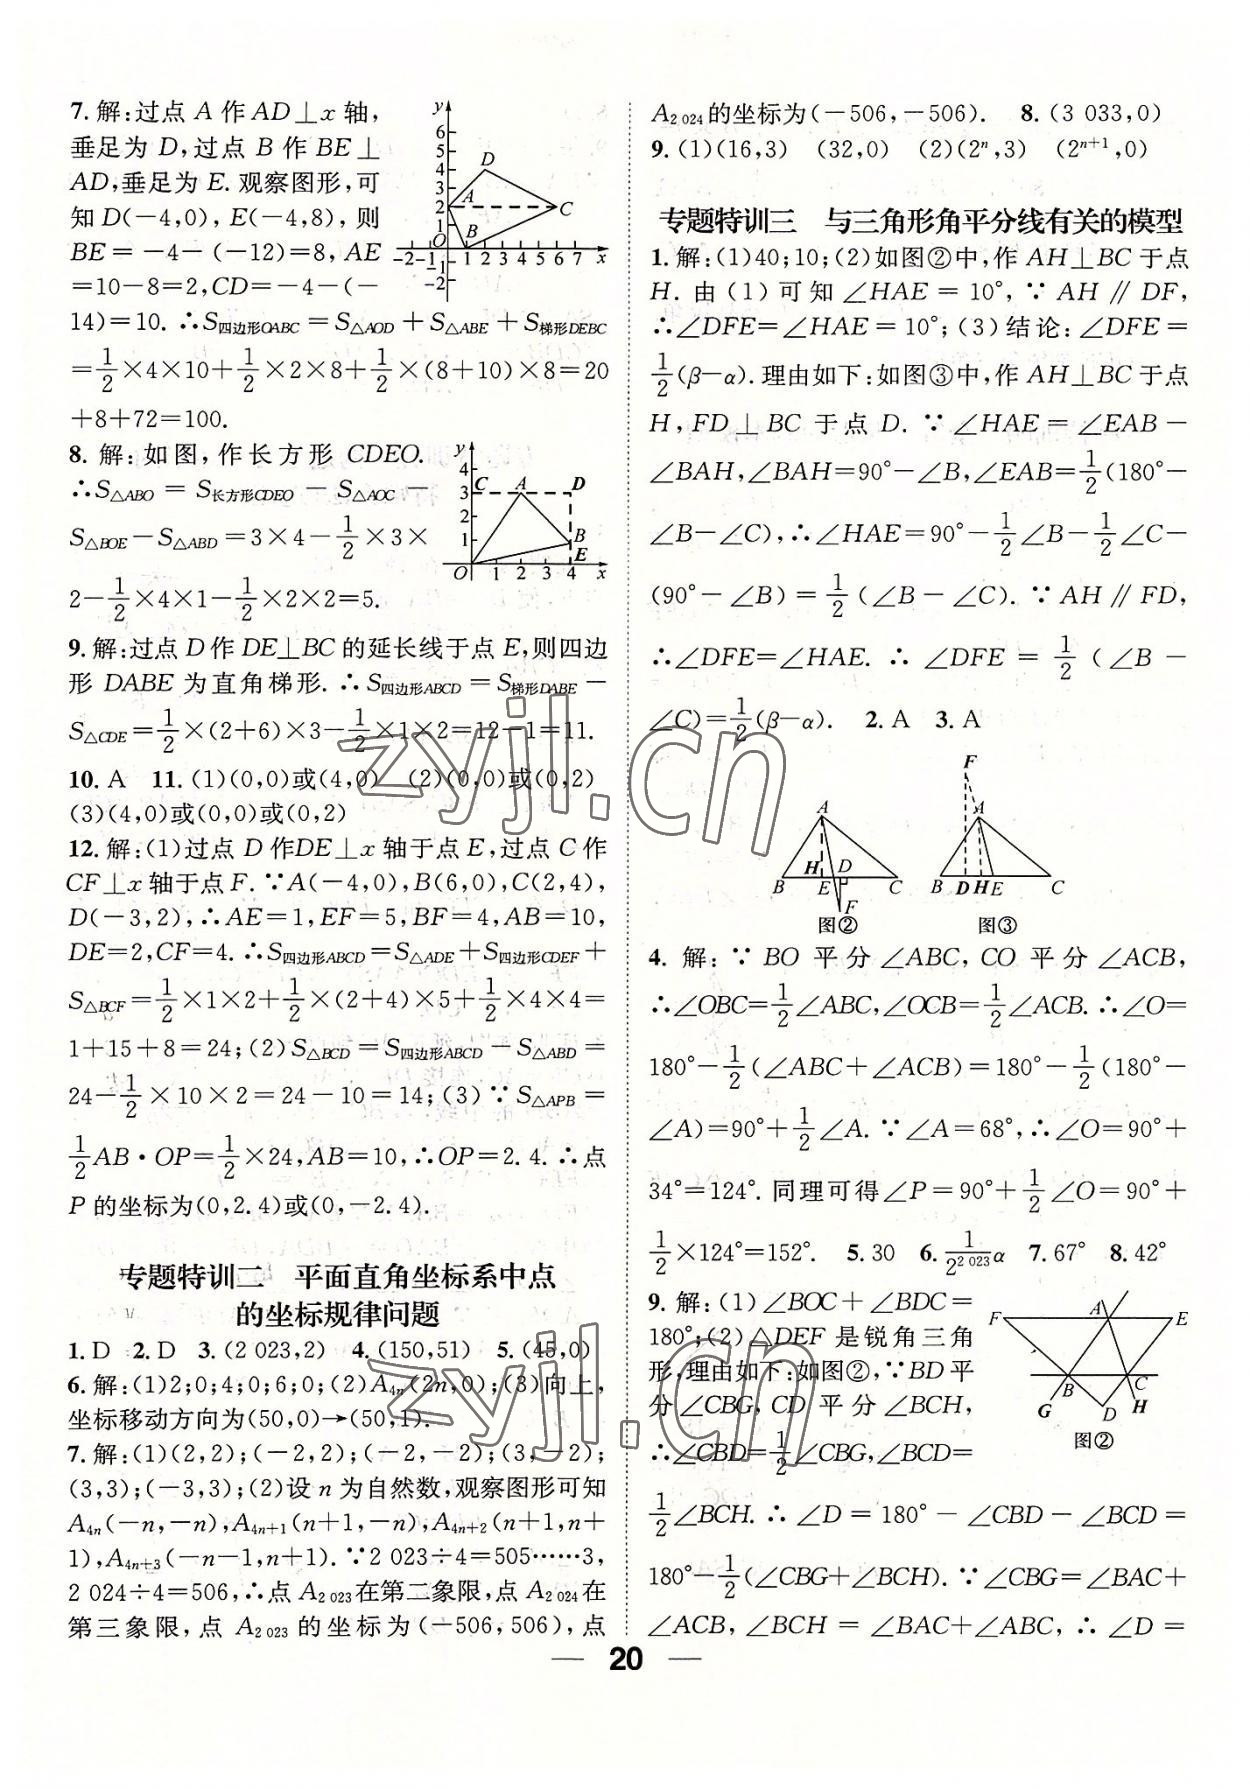 7. 解:过点 A 作 AD⊥x 轴,
垂足为 D,过点 B 作 BE⊥
AD,垂足为 E. 观察图形,可
知 D(-4,0), E(-4,8), 则
BE=-4-(-12)=8, AE
=10-8=2,CD=-4-(-
14)=10. ∴S四边形OABC=S△AOD+S△ABE+S梯形DEBC
=1/2×4×10+1/2×2×8+1/2×(8+10)×8=20
+8+72=100.
8. 解:如图,作长方形 CDEO.
∴S△ABO=S长方形CDEO-S△AOC-
S△BOE-S△ABD=3×4-1/2×3×
2-1/2×4×1-1/2×2×2=5.
9. 解:过点 D 作 DE⊥BC 的延长线于点 E,则四边
形 DABE 为直角梯形. ∴S四边形ABCD=S梯形DABE-
S△CDE=1/2×(2+6)×3-1/2×1×2=12-1=11.
10. A 11. (1)(0,0)或(4,0) (2)(0,0)或(0,2)
(3)(4,0)或(0,0)或(0,2)
12. 解:(1)过点 D 作DE⊥x 轴于点 E,过点 C 作
CF⊥x 轴于点 F. ∵A(-4,0),B(6,0),C(2,4),
D(-3,2),∴AE=1,EF=5,BF=4,AB=10,
DE=2,CF=4. ∴S四边形ABCD=S△ADE+S四边形CDEF+
S△BCF=1/2×1×2+1/2×(2+4)×5+1/2×4×4=
1+15+8=24;(2)S△BCD=S四边形ABCD-S△ABD=
24-1/2×10×2=24-10=14;(3)∵S△APB=
1/2AB·OP=1/2×24,AB=10,∴OP=2.4. ∴点
P 的坐标为(0,2.4)或(0,-2.4).
专题特训二 平面直角坐标系中点
的坐标规律问题
1. D 2. D 3. (2 023,2) 4. (150,51) 5. (45,0)
6. 解:(1)2;0;4;0;6;0;(2)A4n(2n,0);(3)向上,
坐标移动方向为(50,0)→(50,1).
7. 解:(1)(2,2);(-2,2);(-2,-2);(3,-2);
(3,3);(-3,3);(2)设 n 为自然数,观察图形可知
A4n(-n,-n),A4n+1(n+1,-n),A4n+2(n+1,n+
1),A4n+3(-n-1,n+1). ∵2 023÷4=505……3,
2 024÷4=506,∴点 A2 023在第二象限,点 A2 024在
第三象限,点 A2 023 的坐标为(-506,506),点
A2 024的坐标为(-506,-506). 8. (3 033,0)
9. (1)(16,3) (32,0) (2)(2ⁿ,3) (2ⁿ⁺¹,0)
专题特训三 与三角形角平分线有关的模型
1. 解:(1)40;10;(2)如图②中,作 AH⊥BC 于点
H. 由(1)可知∠HAE=10°,∵AH∥DF,
∴∠DFE=∠HAE=10°;(3)结论:∠DFE=
1/2(β-α). 理由如下:如图③中,作 AH⊥BC 于点
H,FD⊥BC 于点 D. ∵∠HAE=∠EAB-
∠BAH,∠BAH=90°-∠B,∠EAB=1/2(180°-
∠B-∠C),∴∠HAE=90°-1/2∠B-1/2∠C-
(90°-∠B)=1/2(∠B-∠C). ∵AH∥FD,
∴∠DFE=∠HAE. ∴∠DFE=1/2(∠B-
∠C)=1/2(β-α). 2. A 3. A
图② 图③
4. 解:∵BO 平分∠ABC,CO 平分∠ACB,
∴∠OBC=1/2∠ABC,∠OCB=1/2∠ACB. ∴∠O=
180°-1/2(∠ABC+∠ACB)=180°-1/2(180°-
∠A)=90°+1/2∠A. ∵∠A=68°,∴∠O=90°+
34°=124°. 同理可得∠P=90°+1/2∠O=90°+
1/2×124°=152°. 5. 30 6. 1/2²⁰²³α 7. 67° 8. 42°
9. 解:(1)∠BOC+∠BDC=
180°;(2)△DEF 是锐角三角
形,理由如下:如图②,∵BD平
分∠CBG,CD 平分∠BCH,
图②
∴∠CBD=1/2∠CBG,∠BCD=
1/2∠BCH. ∴∠D=180°-∠CBD-∠BCD=
180°-1/2(∠CBG+∠BCH). ∵∠CBG=∠BAC+
∠ACB,∠BCH=∠BAC+∠ABC,∴∠D=
20
zyjl.cn
zyjl.cn